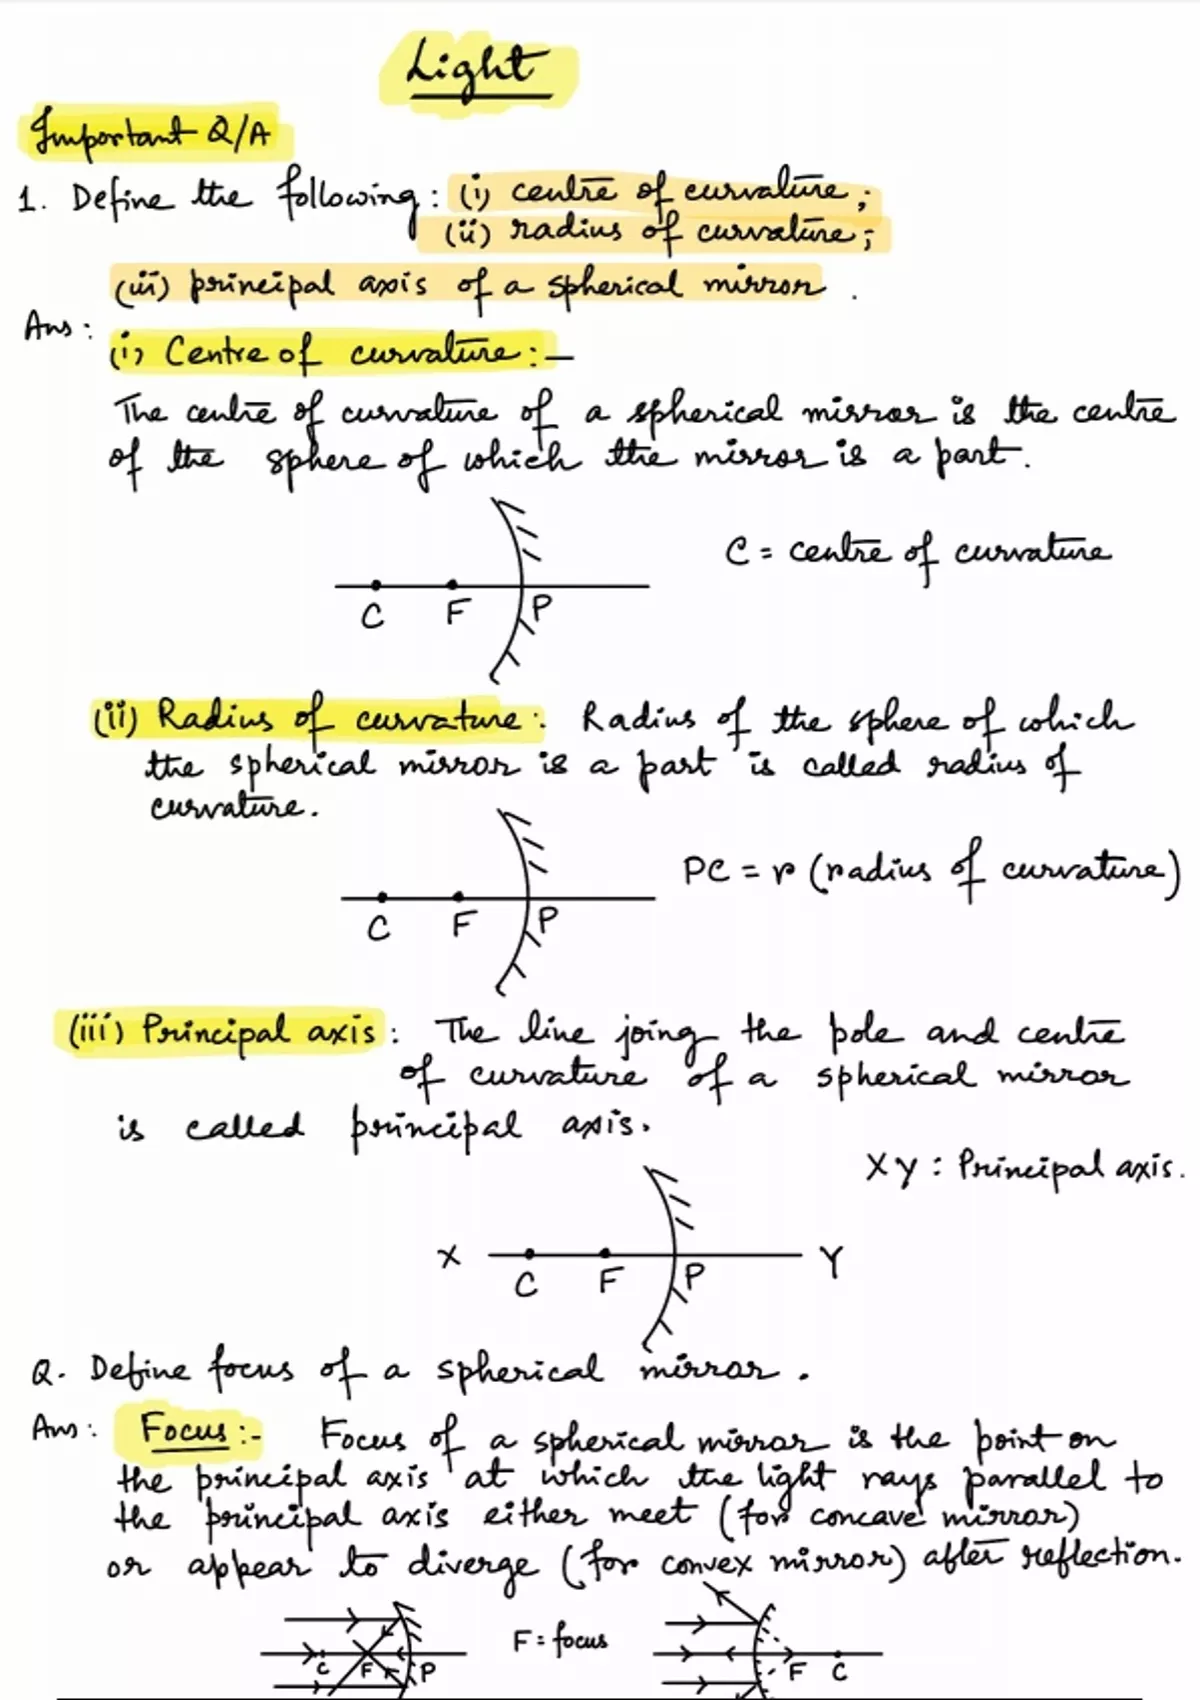 Light
Important Q/A
1. Define the following: (i) centre of curvature;
(ii) radius of curvature;
(iii) principal axis of a spherical mirror.
Ans:
(i) Centre of curvature:-
The centre of curvature of a spherical mirror is the centre
of the sphere of which the mirror is a part.
C = centre of curvature
C F P
(ii) Radius of curvature: Radius of the sphere of which
the spherical mirror is a part is called radius of
curvature.
PC = r (radius of curvature)
C F P
(iii) Principal axis: The line joing the pole and centre
of curvature of a spherical mirror
is called principal axis.
XY: Principal axis.
X C F P Y
Q. Define focus of a spherical mirror.
Ans: Focus:- Focus of a spherical mirror is the point on
the principal axis at which the light rays parallel to
the principal axis either meet (for concave mirror)
or appear to diverge (for convex mirror) after reflection.
C F P F = focus F C